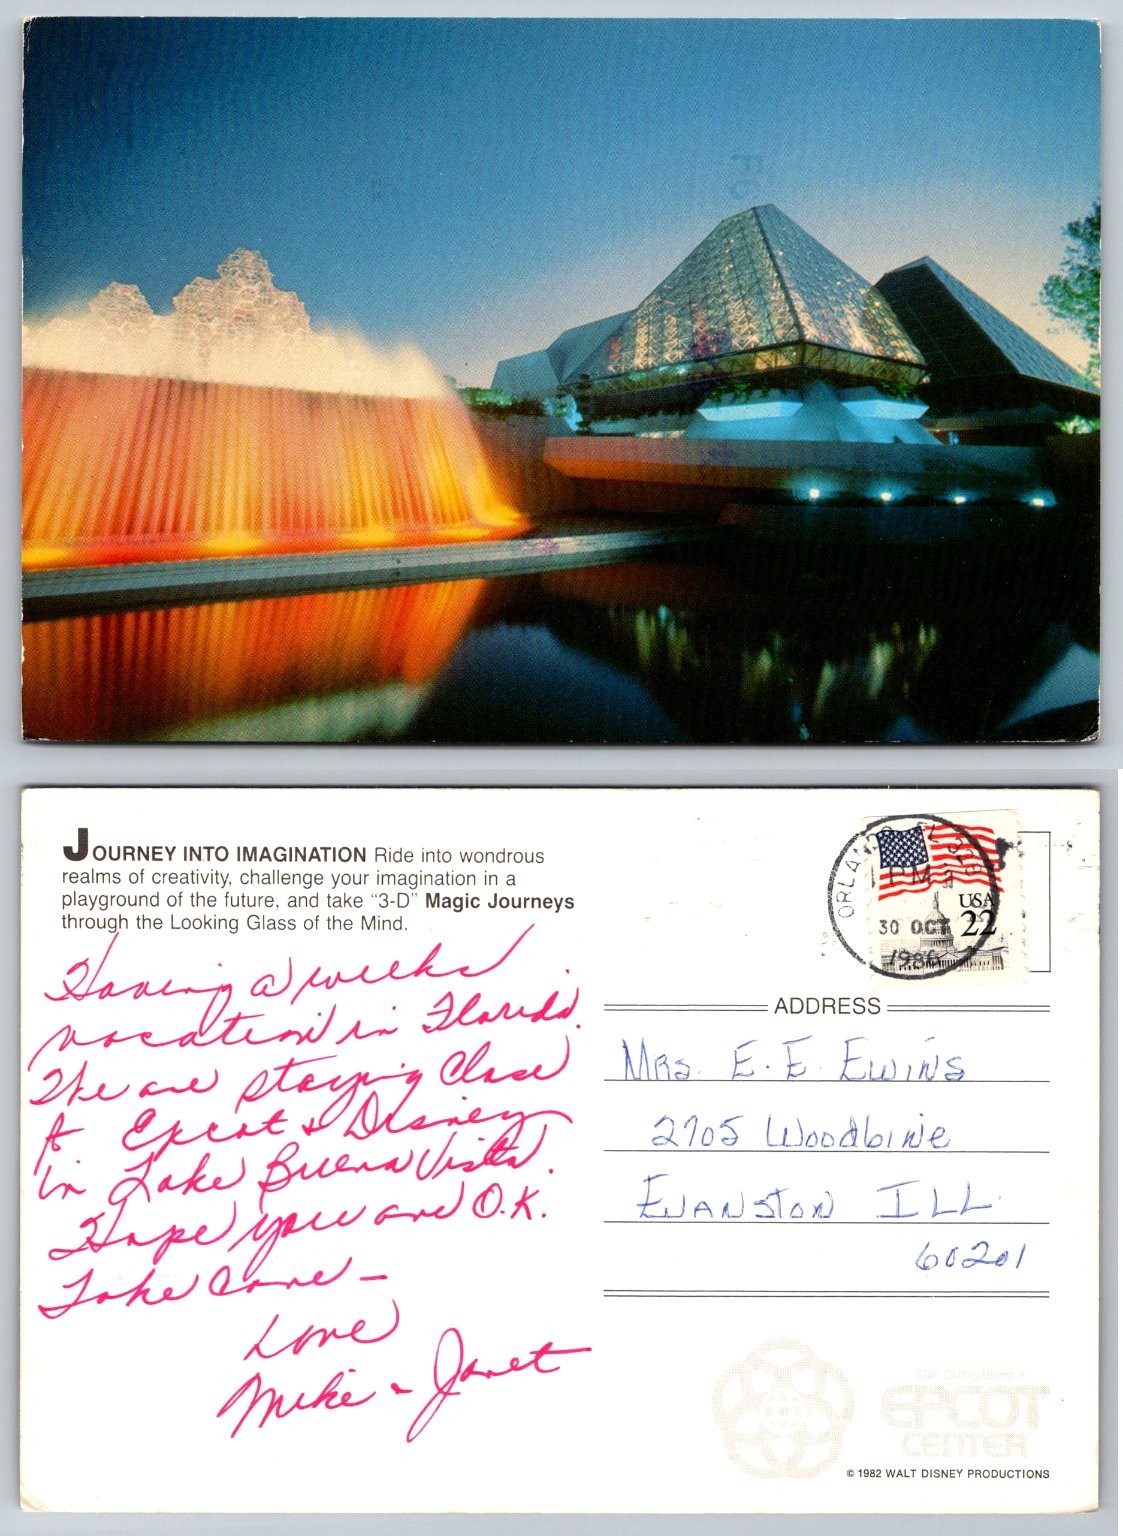 JOURNEY INTO IMAGINATION Ride into wondrous
realms of creativity, challenge your imagination in a
playground of the future, and take "3-D" Magic Journeys
through the Looking Glass of the Mind.
Having a weeks
vacation in Florida.
We are staying close
to Epcot & Disney
in Lake Buena Vista.
Hope you are O.K.
Take Care -
Love
Mike & Janet
ORLANDO, FL 328
PM
30 OCT
1986
USA
22
ADDRESS
Mrs. E. E. Ewins
2705 Woodbine
Evanston ILL
60201
EPCOT
CENTER
© 1982 WALT DISNEY PRODUCTIONS